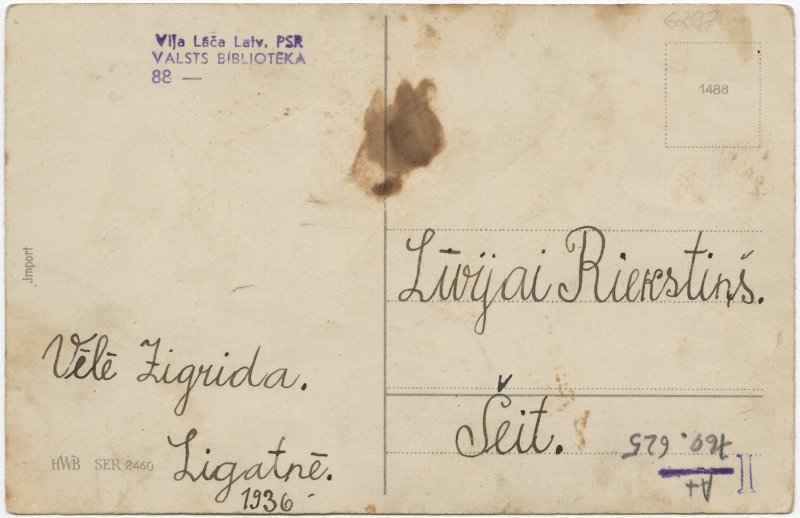 6297
Viļa Lāča Latv. PSR
VALSTS BIBLIOTĒKA
88 —
1488
Jmport
Līvijai Riekstiņš.
Vēlē Zigrida.
Šeit.
Ligatnē.
1936
HWB SER 2460
760.625
A+
II